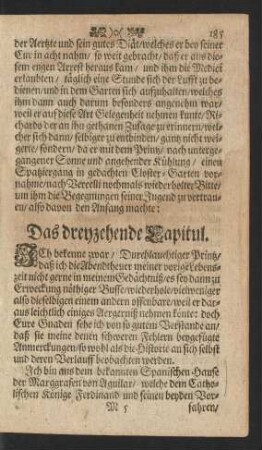 185
der Aertzte und sein gutes Diät/ welches er bey seiner
Cur in acht nahm/ so weit gebracht/ daß er aus die-
sem engen Arrest heraus kam/ und ihm die Medici
erlaubten/ täglich eine Stunde sich der Lufft zu be-
dienen/ und in dem Garten sich aufzuhalten/ welches
ihm dann auch darum besonders angenehm war/
weil er auf diese Art Gelegenheit nehmen kunte/ Ri-
chards der an ihn gethanen Zusage zu erinnern/ wel-
cher sich dann/ selbiger zu entbinden/ gantz nicht wei-
gerte/ sondern/ da er mit dem Printz/ nach unterge-
gangener Sonne und angehender Kühlung/ einen
Spatziergang in gedachten Closter-Garten vor-
nahme/ nach Vercelli nochmals wiederholter Bitte/
um ihm die Begegnungen seiner Jugend zu vertrau-
en/ also davon den Anfang machte:
Das dreyzehende Capitul.
ICh bekenne zwar/ Durchlauchtiger Printz/
daß ich die Abendtheuer meiner vorige Lebens-
zeit nicht gerne in meinem Gedächtniß/ es sey dann zu
Erweckung nöthiger Busse/ wiederhole/ vielweniger
also dieselbigen einem andern offenbare/ weil er dar-
aus leichtlich einiges Aergerniß nehmen könte: doch
Eure Gnaden sehe ich von so gutem Verstande an/
daß sie meine denen schweren Fehlern beygefügte
Anmerckungen/ so wohl als die Historie an sich selbst
und deren Verlauff beobachten werden.
Ich bin aus dem bekannten Spanischen Hause
der Marggrafen von Aguilar/ welche dem Catho-
lischen Könige Ferdinand und seinen beyden Vor-
M 5 fahren/